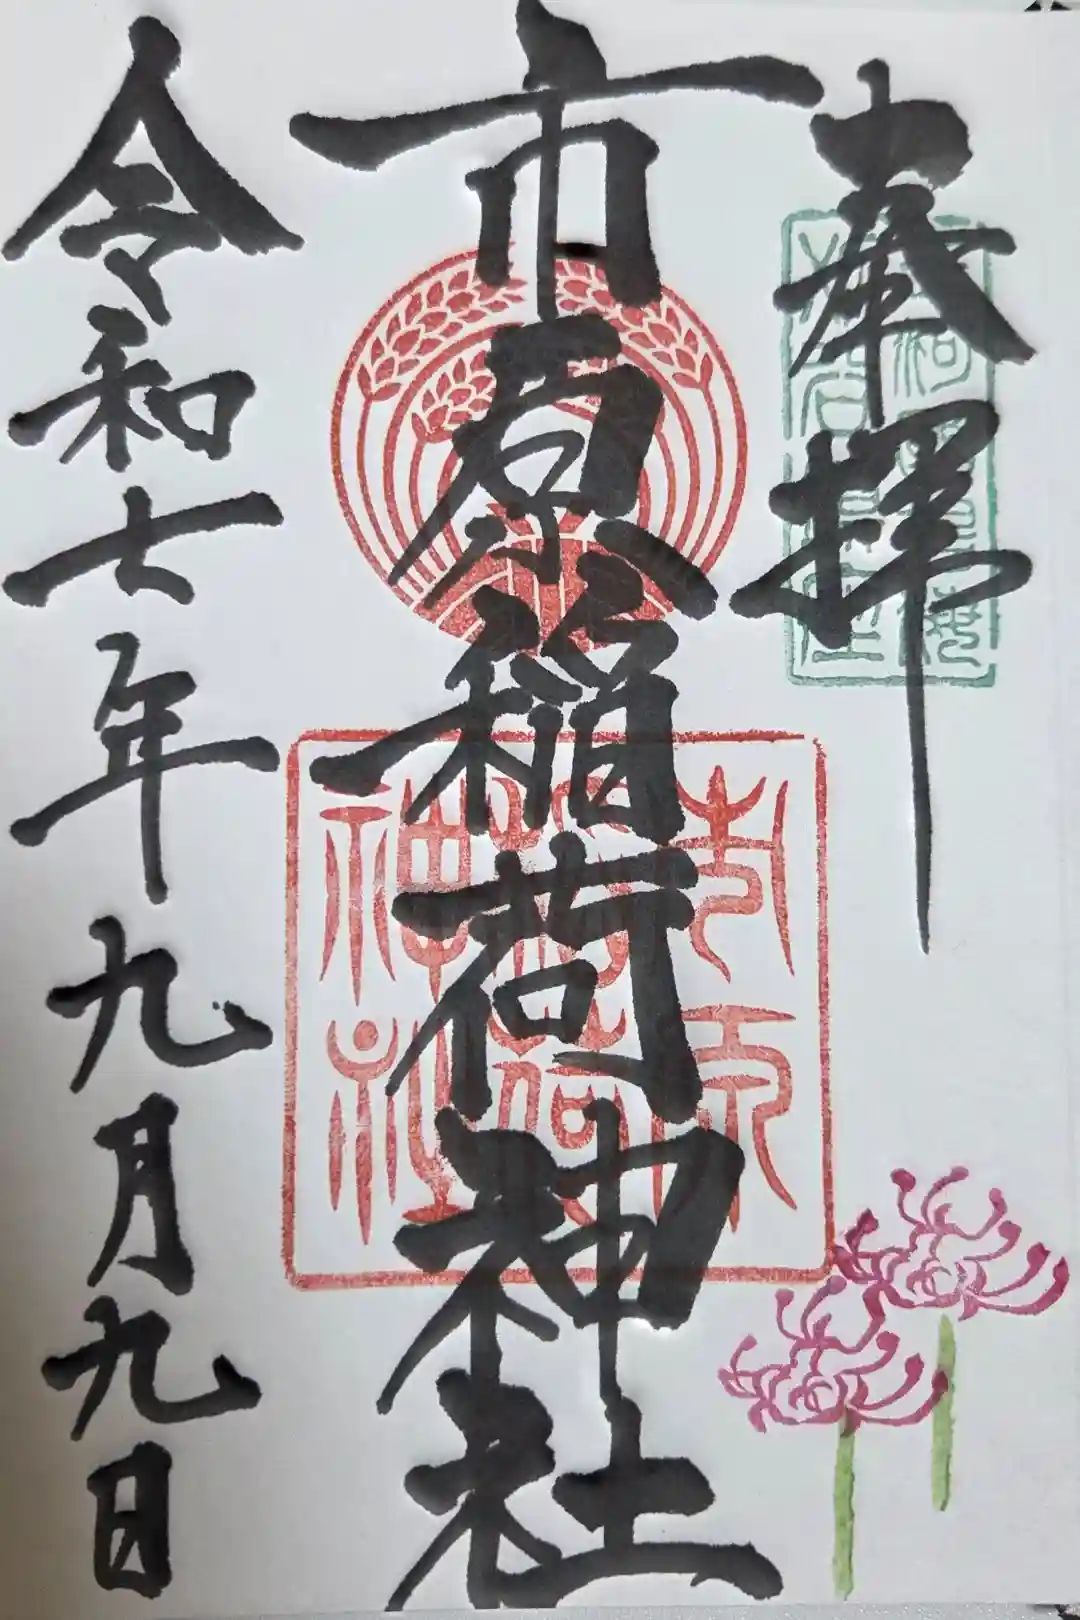 奉拝
市原稲荷神社
市原
稲荷
神社
令和七年九月九日